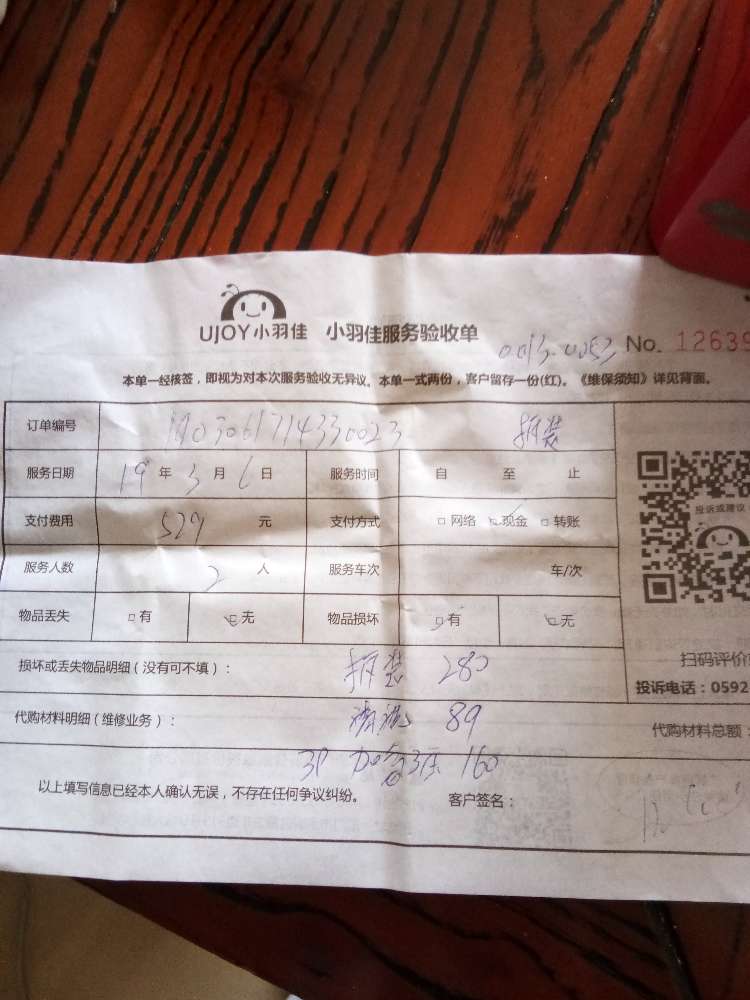 UJOY小羽佳 小羽佳服务验收单 No. 12639
本单一经核签，即视为对本次服务验收无异议。本单一式两份，客户留存一份(红)。《维保须知》详见背面。
订单编号 拆装
服务日期 19 年 3 月 6 日 服务时间 自 至 止
支付费用 529 元 支付方式 □网络 □现金 □转账
投诉或建议
服务人数 2 人 服务车次 车/次
物品丢失 □有 □无 物品损坏 □有 □无
扫码评价
损坏或丢失物品明细（没有可不填）： 拆装 280
投诉电话：0592
代购材料明细（维修业务）： 清洗 89
代购材料总额：
3P 加管3米 160
以上填写信息已经本人确认无误，不存在任何争议纠纷。 客户签名：